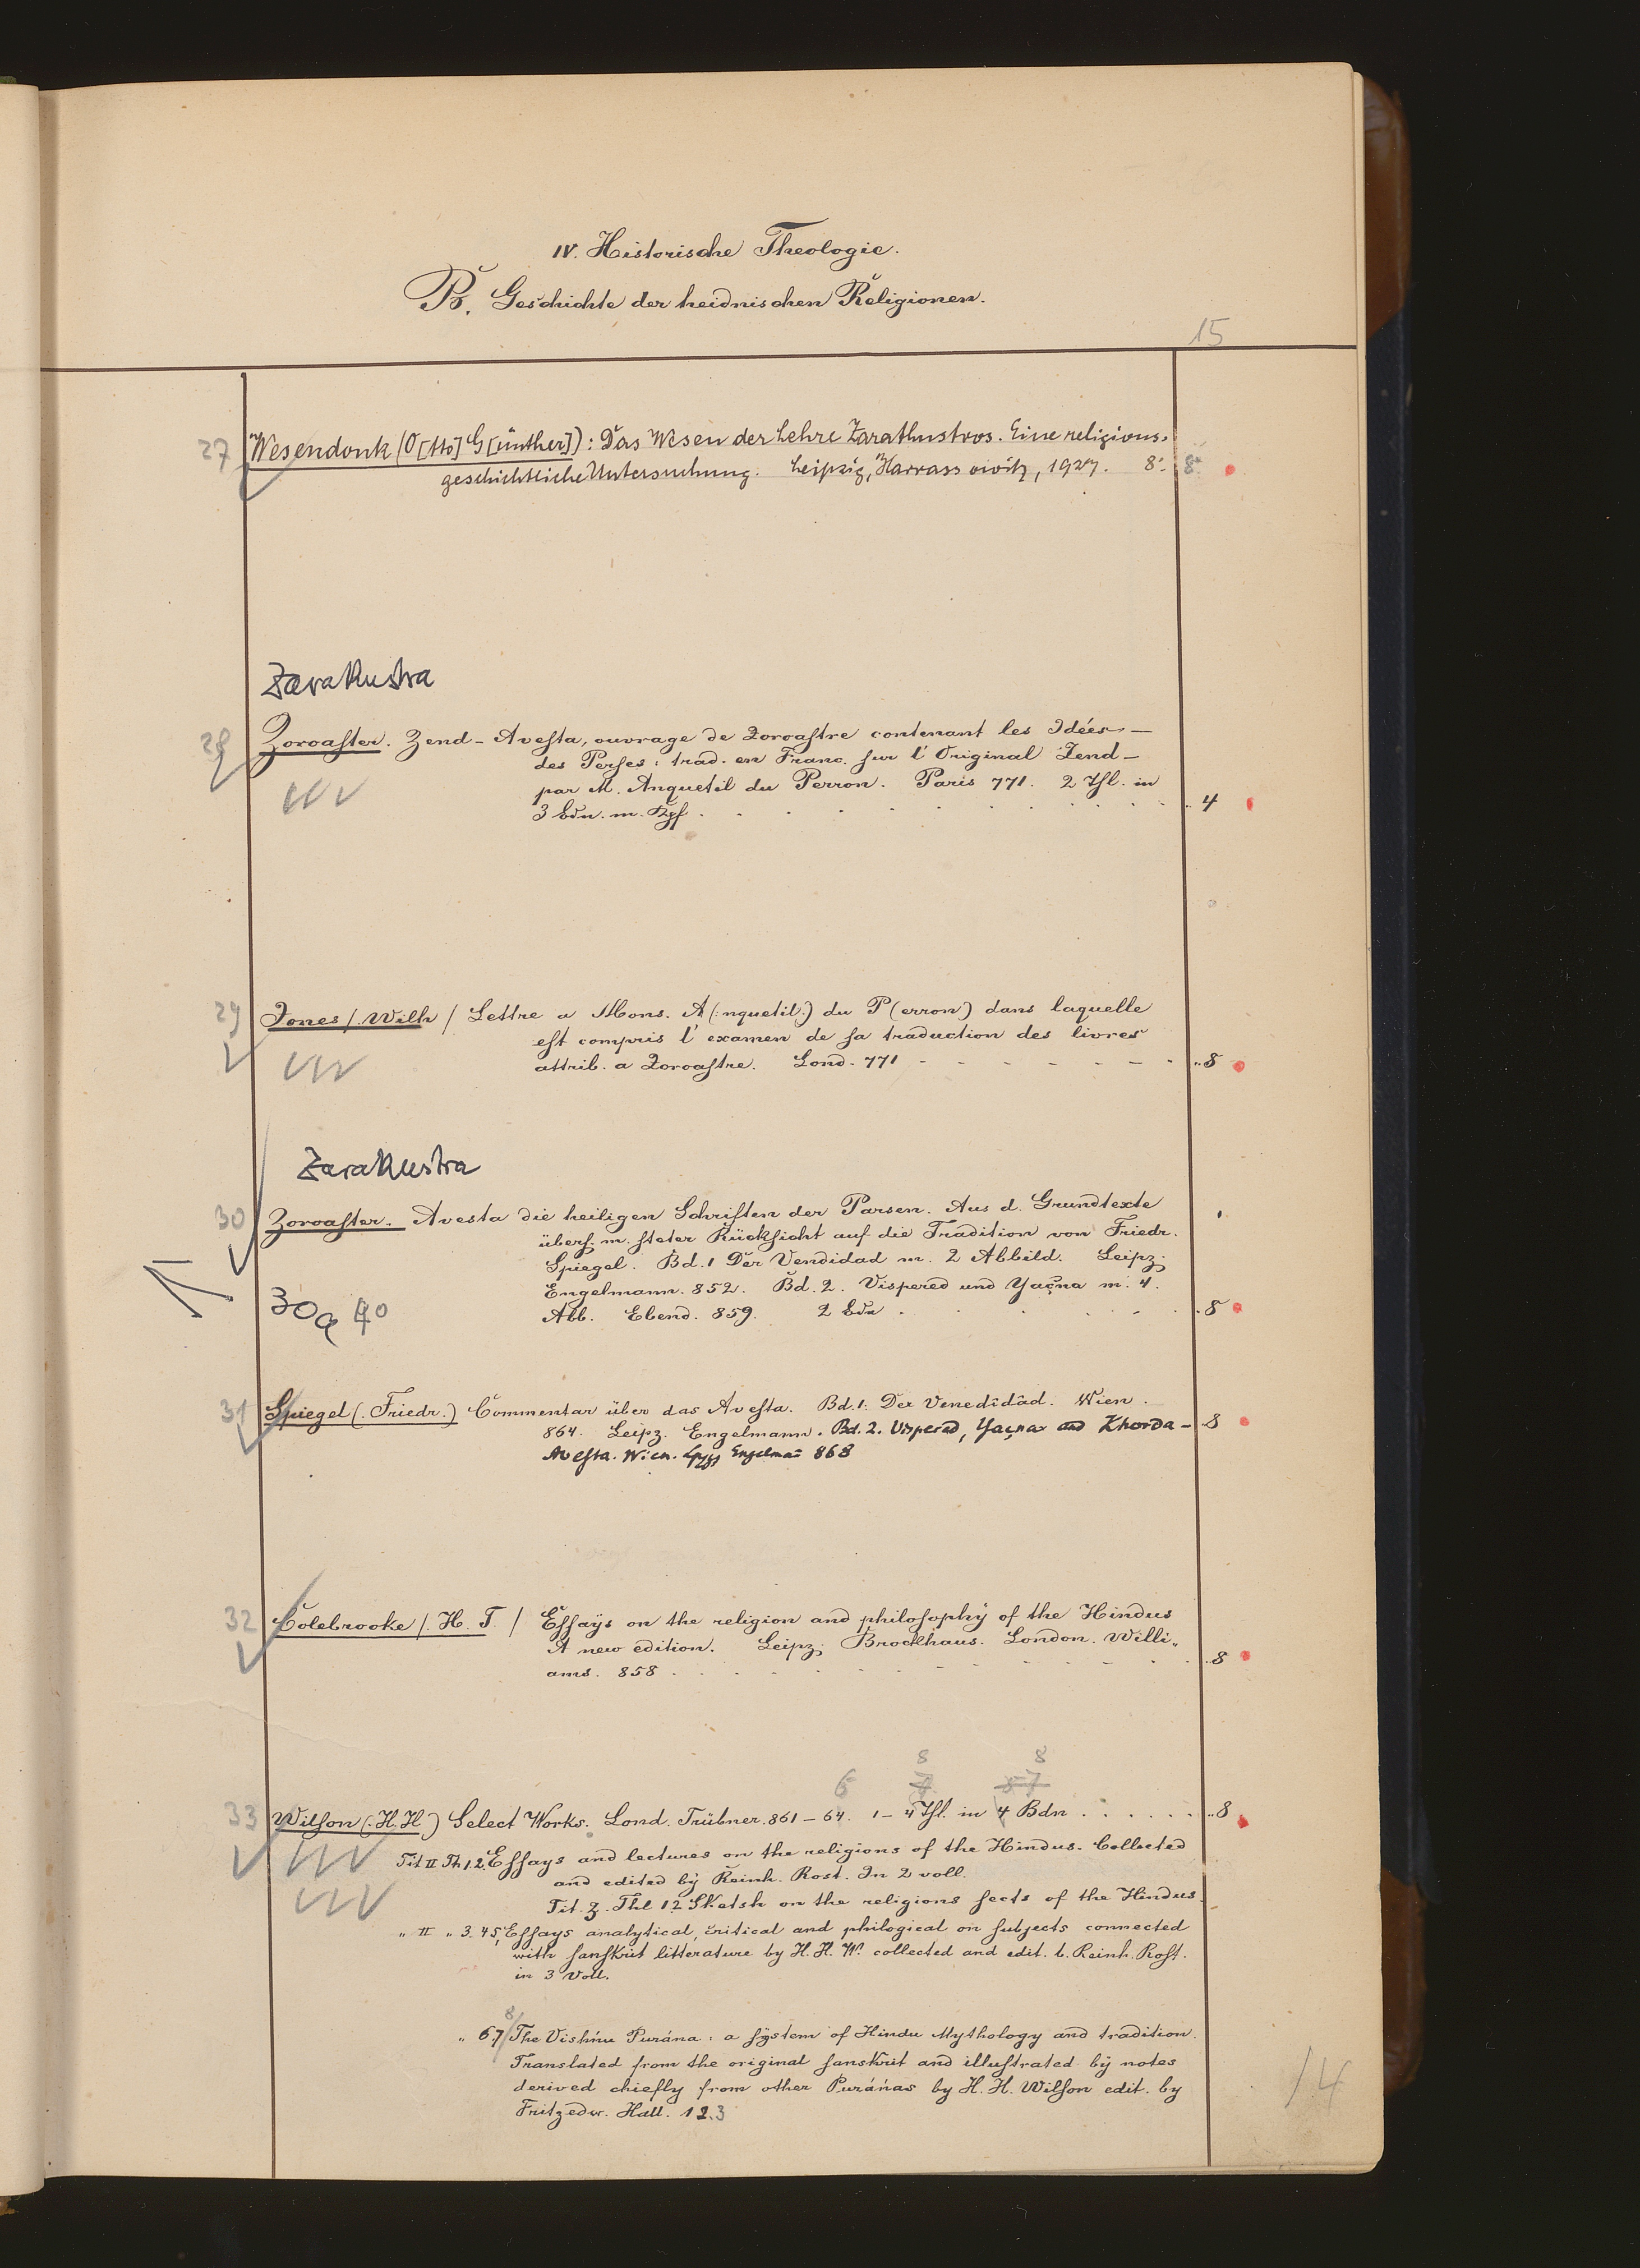 IV. Historische Theologie.
B. Geschichte der heidnischen Religionen.
15
27 Wesendonk (O[tto] G[ünther]): Das Wesen der Lehre Zarathustros. Eine religions-
geschichtliche Untersuchung. Leipzig, Harrassowitz, 1927. 8°. 8°
Zarathustra
28 Zoroaster. Zend-Avesta, ouvrage de Zoroastre contenant les Idées —
des Perses: trad. en Franc. sur l'Original Zend —
par M. Anquetil du Perron. Paris 771. 2 Thl. in
3 Bdn. m. Kpf . . . . 4
29 Jones /. Wilh / Lettre a Mons. A(:nquetil:) du P(erron) dans laquelle
est compris l'examen de sa traduction des livres
attrib. a Zoroastre. Lond. 771 - - - - - - 8
Zarathustra
30 Zoroaster. Avesta die heiligen Schriften der Parsen. Aus d. Grundtexte
übers. m. steter Rücksicht auf die Tradition von Friedr.
Spiegel. Bd. 1 Der Vendidad m. 2 Abbild. Leipz.
Engelmann. 852. Bd. 2. Vispered und Yaçna m. 4.
30a 40 Abb. Ebend. 859. 2 Bdn . . . . 8
31 Spiegel (. Friedr.) Commentar über das Avesta. Bd. 1. Der Venedidâd. Wien.
864. Leipz. Engelmann. Bd. 2. Vispered, Yaçna and Khorda- 8
Avesta. Wien. Lpzg Engelmañ 868
32 Colebrooke /. H. T. / Essays on the religion and philosophy of the Hindus
A new edition. Leipz. Brockhaus. London. Willi-
ams. 858 . . . . . . . 8
8 8
6 7 5 7
33 Wilson (. H. H ) Select Works. Lond. Trübner. 861 – 64. 1 – 4 Thl. in 4 Bdn . . . . . . 8
Tit II Th 1.2. Essays and lectures on the religions of the Hindus. Collected
and edited by Reinh. Rost. In 2 voll.
Tit. z. Thl 1 2 Sketsh on the religions sects of the Hindus.
„ II „ 3. 4 5, Essays analytical, critical and philogical on subjects connected
with sanskrit litterature by H. H. W. collected and edit. b. Reinh. Rost.
in 3 Voll.
8
„ 6.7 The Vishńu Purána: a system of Hindu Mythology and tradition.
Translated from the original sanskrit and illustrated by notes
derived chiefly from other Puráńas by H. H. Wilson edit. by
Fritzedw. Hall. 1 2.3
14